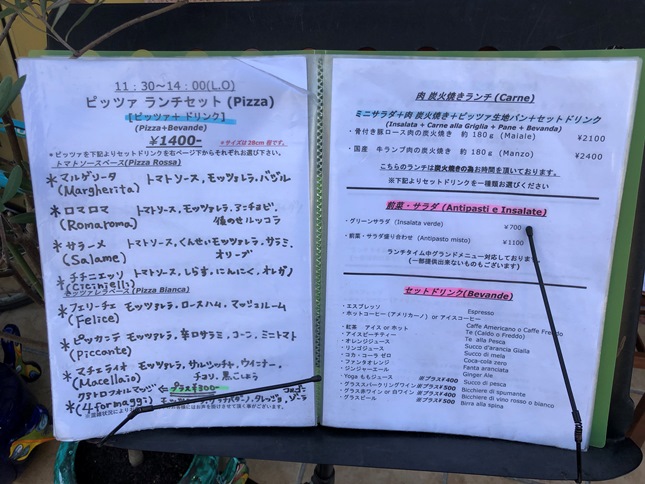 11：30～14：00(L.O)
ピッツァ ランチセット(Pizza)
[ピッツァ＋ ドリンク]
(Pizza+Bevande)
¥1400-
*サイズは28cm 位です。
*ピッツァを下記よりセットドリンクを右ページ下からそれぞれお選び下さい。
トマトソースベース(Pizza Rossa)
*マルゲリータ トマトソース,モッツァレラ,バジル
(Margherita)
*ロマロマ トマトソース,モッツァレラ,アンチョビ,
(Romaroma) 後のせルッコラ
*サラーメ トマトソース,くんせいモッツァレラ,サラミ,
(Salame) オリーブ
*チチニエッリ トマトソース,しらす,にんにく,オレガノ
(Cicinielli)
モッツァレラベース(Pizza Bianca)
*フェリーチェ モッツァレラ,ロースハム,マッシュルーム
(Felice)
*ピッカンテ モッツァレラ,辛口サラミ,コーン,ミニトマト
(Piccante)
*マチェライオ モッツァレラ,サルシッチャ,ウインナー,
(Macellaio) チョリ,黒こしょう
クワトロフォルマッジ ← プラス¥300-
*(4 formaggi) モッツァレラ, タレッジョ,
肉 炭火焼きランチ (Carne)
ミニサラダ＋肉 炭火焼き＋ピッツァ生地パン＋セットドリンク
(Insalata + Carne alla Griglia + Pane + Bevanda)
・骨付き豚ロース肉の炭火焼き 約 180ｇ (Maiale) ¥2100
・国産 牛ランプ肉の炭火焼き 約 180ｇ (Manzo) ¥2400
こちらのランチは炭火焼きの為お時間を頂いております。
※下記よりセットドリンクを一種類お選びください
前菜・サラダ (Antipasti e Insalate)
・グリーンサラダ (Insalata verde) ¥700
・前菜・サラダ盛り合わせ (Antipasto misto) ¥1100
ランチタイム中グランドメニュー対応しております。
(一部提供出来ないものもございます)
セットドリンク(Bevande)
・エスプレッソ Espresso
・ホットコーヒー(アメリカーノ) or アイスコーヒー Caffe Americano o Caffe Freddo
・紅茶 アイス or ホット Te (Caldo o Freddo)
・アイスピーチティー Te alla Pesca
・オレンジジュース Succo d'arancia Gialla
・リンゴジュース Succo di mela
・コカ・コーラ ゼロ Coca-cola zero
・ファンタオレンジ Fanta aranciata
・ジンジャーエール Ginger Ale
・Yoga ももジュース ※プラス¥400 Succo di pesca
・グラススパークリングワイン ※プラス¥500 Bicchiere di spumante
・グラス赤ワイン or 白ワイン ※プラス¥400 Bicchiere di vino rosso o bianco
・グラスビール ※プラス¥500 Birra alla spina